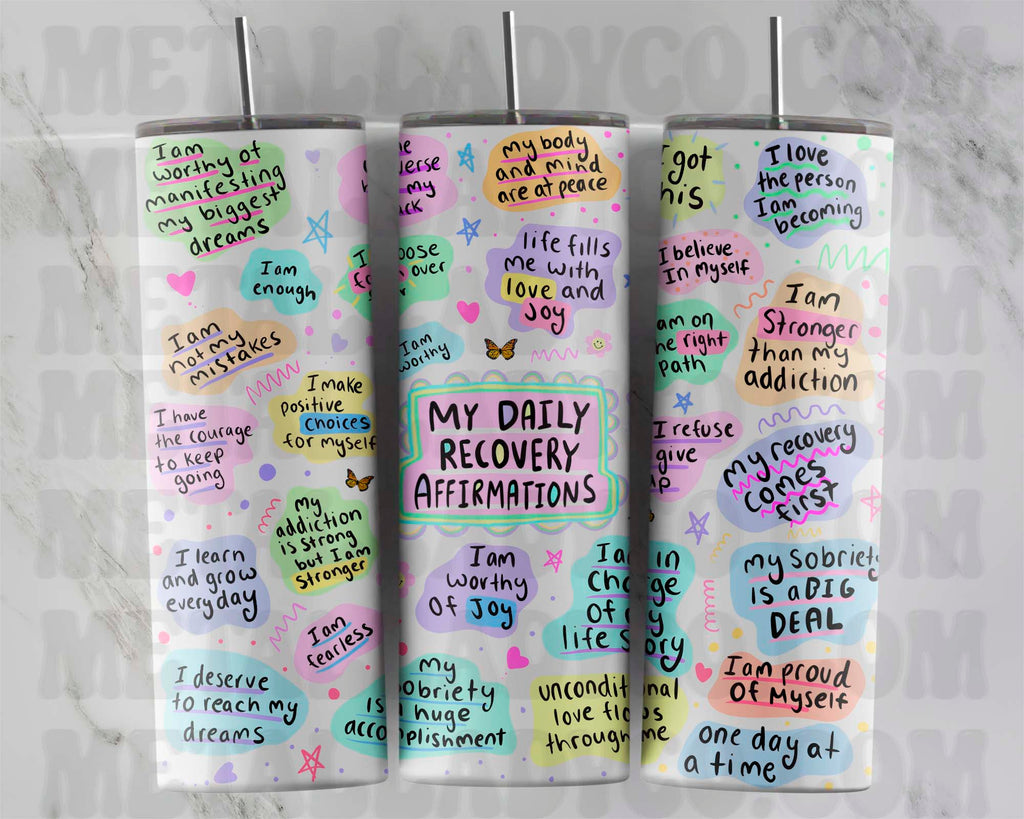 METALLADYCO.COM
I am
worthy of
manifesting
my biggest
dreams
I am
enough
I am
not my
mistakes
I make
positive
choices
for myself
I have
the courage
to keep
going
my
addiction
is strong
but I am
stronger
I learn
and grow
everyday
I am
fearless
I deserve
to reach my
dreams
my body
and mind
are at peace
life fills
me with
love and
joy
I am
worthy
MY DAILY
RECOVERY
AFFIRMATIONS
I am
worthy
of joy
I am in
charge
of my
life story
my
sobriety
is a huge
accomplishment
unconditional
love flows
through me
got
I love
the person
I am
becoming
I believe
in myself
am on
right
path
I am
Stronger
than my
addiction
I refuse
give
my recovery
comes
first
my sobriety
is a BIG
DEAL
I am proud
of myself
one day at
a time